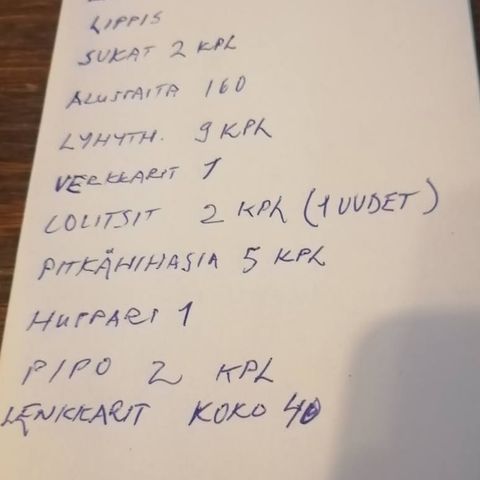 LIPPIS
SUKAT 2 KPL
ALUSPAITA 160
LYHYTH. 9 KPL
VERKKARIT 1
COLITSIT 2 KPL (1 UUDET)
PITKÄHIHASIA 5 KPL
HUPPARI 1
PIPO 2 KPL
LENKKARIT KOKO 40